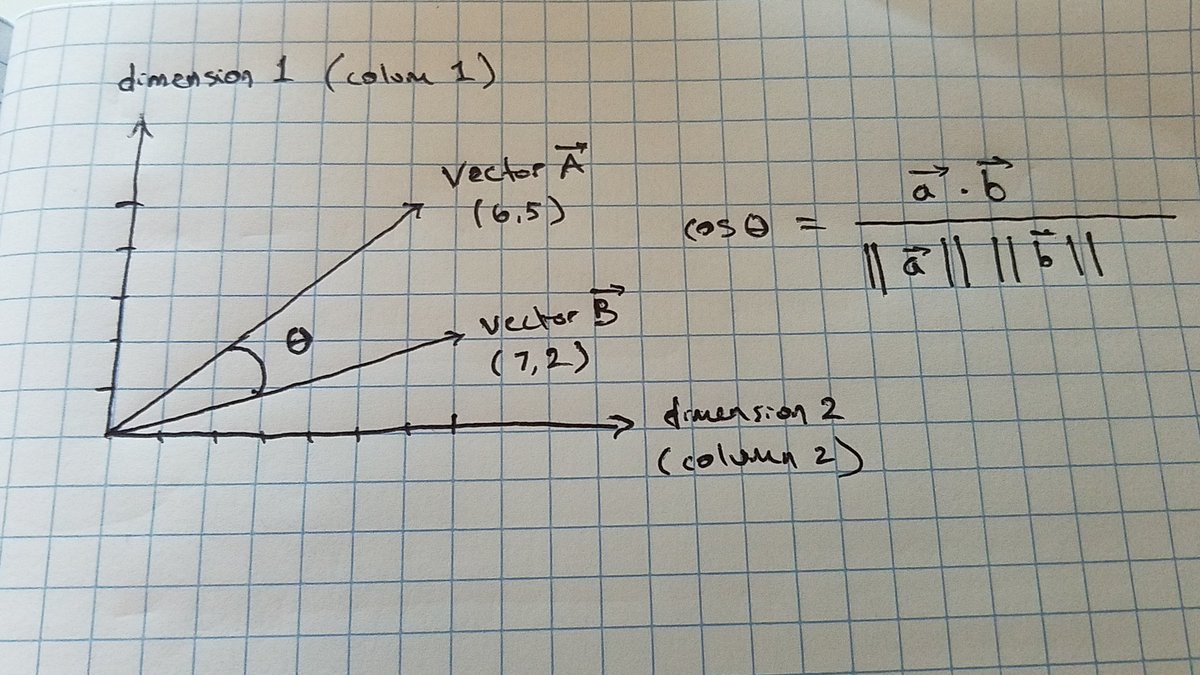 dimension 1 (colum 1)
vector A⃗
(6,5)
θ
vector B⃗
(7,2)
dimension 2
(column 2)
cos θ = a⃗ · b⃗ / ||a⃗|| ||b⃗||